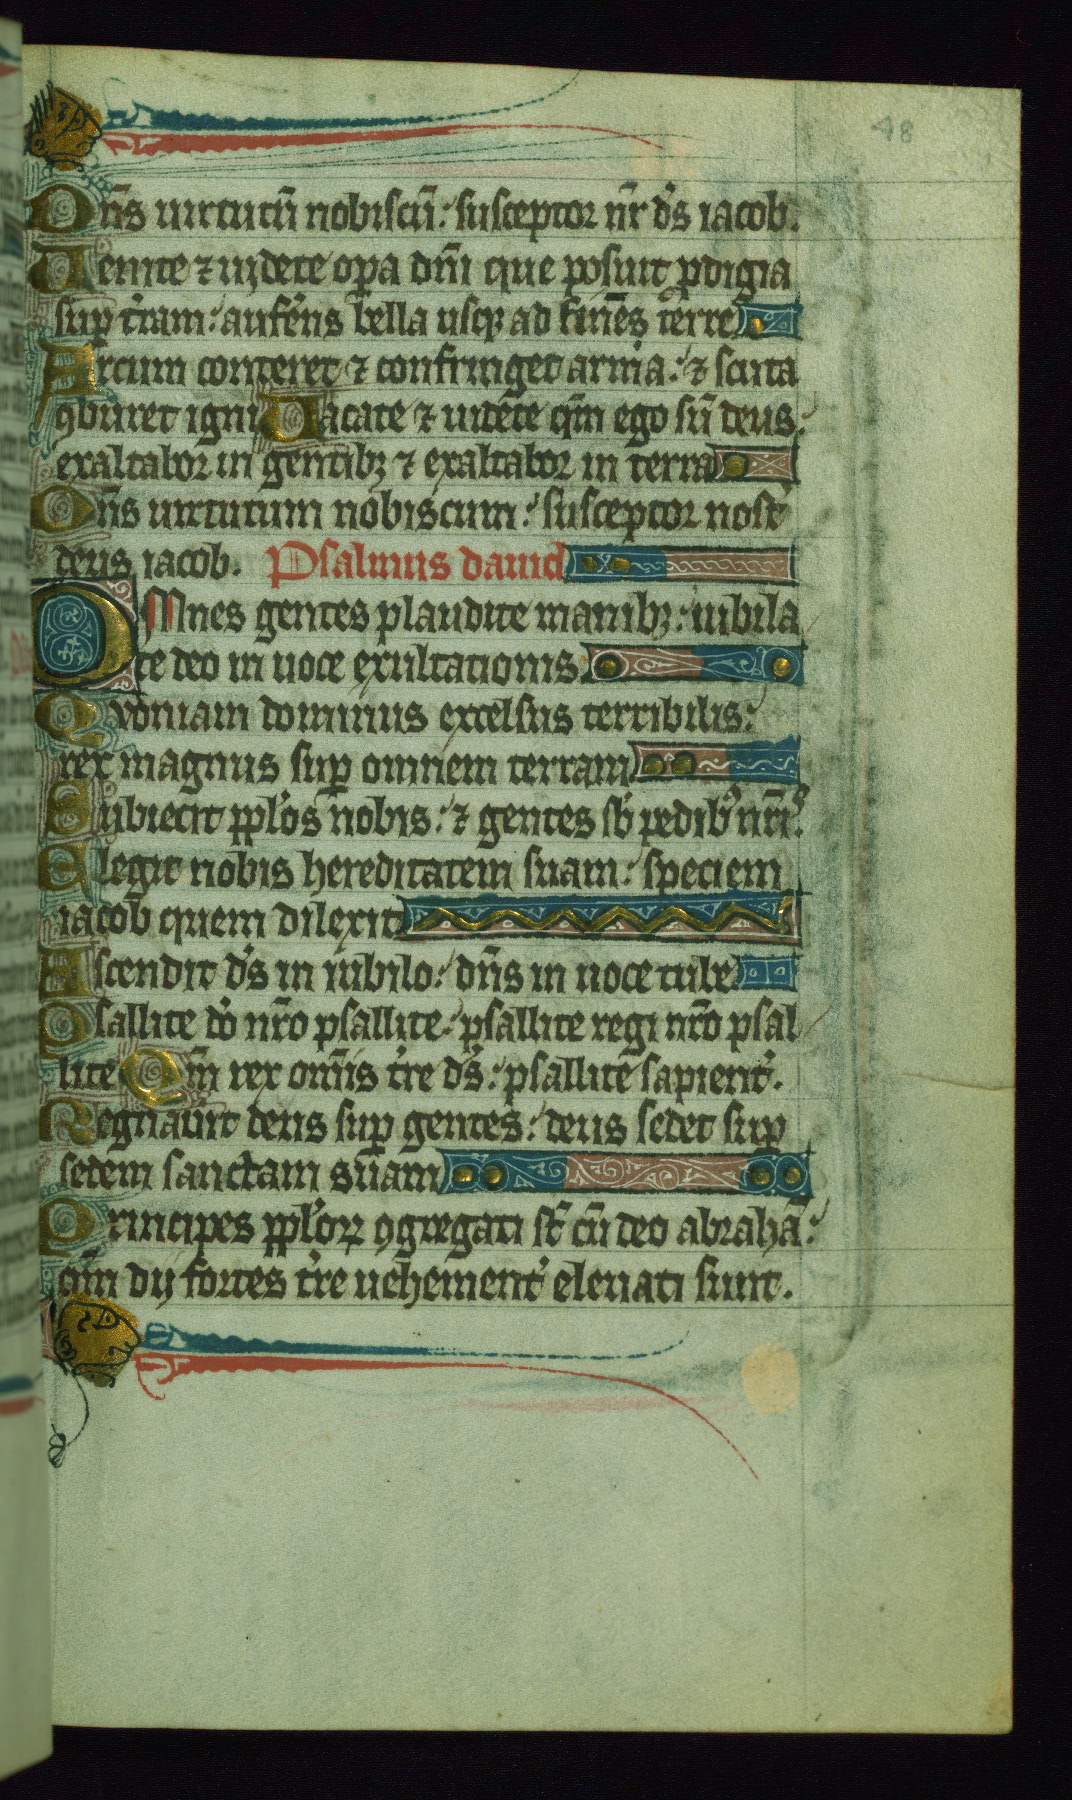 48
Dñs uirtutũ nobiscũ: susceptor nr̃ ds̉ iacob.
Uenite ⁊ uidete opa dñi que posuit pdigia
sup tr̉am: aufer̉ns bella usqꝫ ad fines terre
Arcum conteret ⁊ confringet arma: ⁊ scuta
ꝯburet igni Uacate ⁊ uidete qm̃ ego sũ deus:
exaltabor in gentibꝫ ⁊ exaltabor in terra
Dñs uirtutum nobiscum: susceptor nost̉
deus iacob. Psalmus dauid
OMnes gentes plaudite manibꝫ: iubila
te deo in uoce exultationis
Quoniam dominus excelsus terribilis:
rex magnus sup omnem terram
Subiecit ppl̉os nobis: ⁊ gentes sb̉ pedibꝰ nr̃is.
Elegit nobis hereditatem suam: speciem
iacob quem dilexit
Ascendit ds̉ in iubilo: dñs in uoce tube
Psallite dỏ nr̃o psallite: psallite regi nr̃o psal
lite Qm̃ rex om̃is tr̉e ds̉: psallite sapient̉.
Regnauit deus sup gentes: deus sedet sup
sedem sanctam suam
Principes ppl̉oꝝ ꝯgregati st̃ cũ deo abrahã:
qm̃ dij fortes tr̉e uehement̉ eleuati sunt.